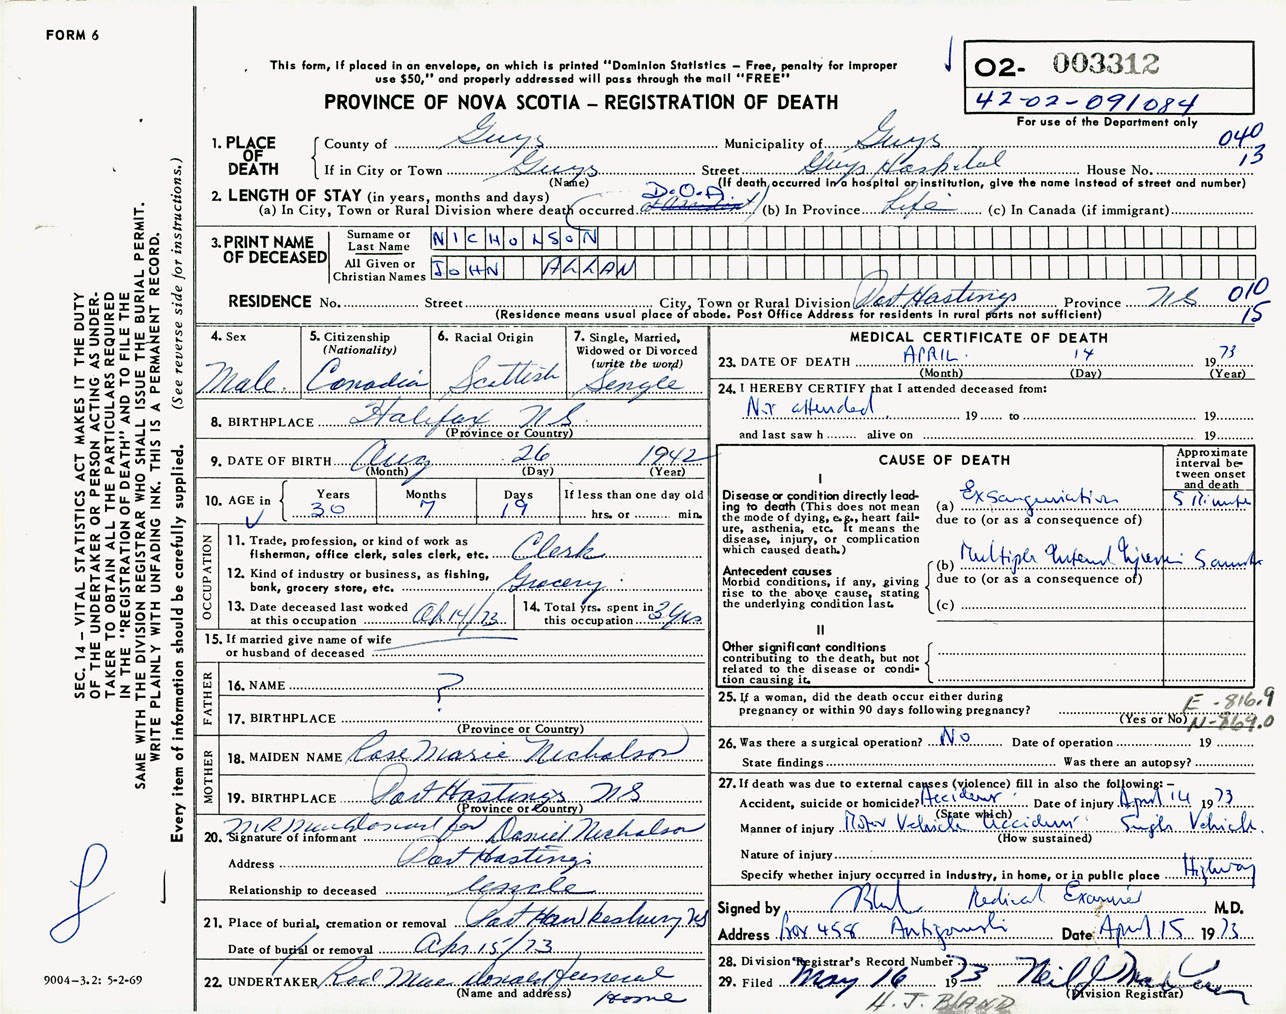 FORM 6
This form, if placed in an envelope, on which is printed "Dominion Statistics – Free, penalty for improper
use $50," and properly addressed will pass through the mail "FREE"
PROVINCE OF NOVA SCOTIA – REGISTRATION OF DEATH
02- 003312
42-02-091084
For use of the Department only
SEC. 14 – VITAL STATISTICS ACT MAKES IT THE DUTY
OF THE UNDERTAKER OR PERSON ACTING AS UNDER-
TAKER TO OBTAIN ALL THE PARTICULARS REQUIRED
IN THE "REGISTRATION OF DEATH" AND TO FILE THE
SAME WITH THE DIVISION REGISTRAR WHO SHALL ISSUE THE BURIAL PERMIT.
WRITE PLAINLY WITH UNFADING INK. THIS IS A PERMANENT RECORD.
Every item of information should be carefully supplied. (See reverse side for instructions.)
9004-3.2: 5-2-69
1. PLACE OF DEATH
County of Guys Municipality of Guys 040
If in City or Town Guys Street Guys Hospital House No. 13
(Name) (If death occurred in a hospital or institution, give the name instead of street and number)
2. LENGTH OF STAY (in years, months and days) D.O.A
(a) In City, Town or Rural Division where death occurred (b) In Province Life (c) In Canada (if immigrant)
3. PRINT NAME OF DECEASED
Surname or Last Name NICHOLSON
All Given or Christian Names JOHN ALLAN
RESIDENCE No. Street City, Town or Rural Division Port Hastings Province NS 010
(Residence means usual place of abode. Post Office Address for residents in rural parts not sufficient) 15
4. Sex Male
5. Citizenship (Nationality) Canadian
6. Racial Origin Scottish
7. Single, Married, Widowed or Divorced (write the word) Single
8. BIRTHPLACE Halifax NS
(Province or Country)
9. DATE OF BIRTH Aug 26 1942
(Month) (Day) (Year)
10. AGE in Years 30 Months 7 Days 19 If less than one day old hrs. or min.
OCCUPATION
11. Trade, profession, or kind of work as fisherman, office clerk, sales clerk, etc. Clerk
12. Kind of industry or business, as fishing, bank, grocery store, etc. Grocery
13. Date deceased last worked at this occupation Ap. 14/73
14. Total yrs. spent in this occupation 3 yrs
15. If married give name of wife or husband of deceased
FATHER
16. NAME ?
17. BIRTHPLACE
(Province or Country)
MOTHER
18. MAIDEN NAME Rose Marie Nicholson
19. BIRTHPLACE Port Hastings NS
(Province or Country)
20. Signature of informant MR MacDonald for Daniel Nicholson
Address Port Hastings
Relationship to deceased Uncle
21. Place of burial, cremation or removal Port Hawkesbury NS
Date of burial or removal Apr 15/73
22. UNDERTAKER Rod MacDonald Funeral Home
(Name and address)
MEDICAL CERTIFICATE OF DEATH
23. DATE OF DEATH APRIL 14 1973
(Month) (Day) (Year)
24. I HEREBY CERTIFY that I attended deceased from:
Not attended 19 to 19
and last saw h alive on 19
CAUSE OF DEATH
Approximate interval between onset and death
I
Disease or condition directly leading to death (This does not mean the mode of dying, e.g., heart failure, asthenia, etc. It means the disease, injury, or complication which caused death.)
(a) Exsanguination 5 Minutes
due to (or as a consequence of)
Antecedent causes
Morbid conditions, if any, giving rise to the above cause, stating the underlying condition last.
(b) Multiple Internal Injuries 5 minutes
due to (or as a consequence of)
(c)
II
Other significant conditions contributing to the death, but not related to the disease or condition causing it.
25. If a woman, did the death occur either during pregnancy or within 90 days following pregnancy? E-816.9
(Yes or No) N-869.0
26. Was there a surgical operation? No Date of operation 19
State findings Was there an autopsy?
27. If death was due to external causes (violence) fill in also the following:–
Accident, suicide or homicide? Accident Date of injury April 14 1973
(State which)
Manner of injury Motor Vehicle Accident Single Vehicle
(How sustained)
Nature of injury
Specify whether injury occurred in Industry, in home, or in public place Highway
Signed by Medical Examiner M.D.
Address Box 458 Antigonish Date April 15 1973
28. Division Registrar's Record Number
29. Filed May 16 1973 Neil J.
(Division Registrar)
H. J. BLAND